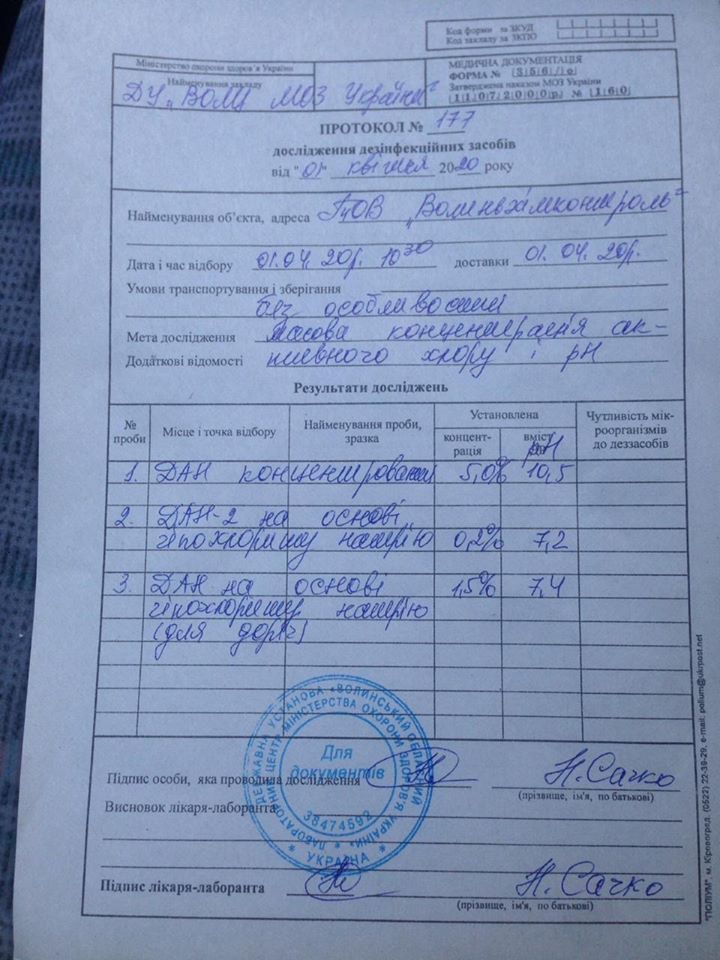 Код форми за ЗКУД
Код закладу за ЗКПО
Міністерство охорони здоров'я України
Найменування закладу
ДУ „ВОЛЦ МОЗ України"
МЕДИЧНА ДОКУМЕНТАЦІЯ
ФОРМА № 356/о
Затверджена наказом МОЗ України
11072000р № 160
ПРОТОКОЛ № 177
дослідження дезінфекційних засобів
від "01" квітня 2020 року
Найменування об'єкта, адреса ТзОВ „Волиньхімконтроль"
Дата і час відбору 01.04.20р. 10³⁰ доставки 01.04.20р.
Умови транспортування і зберігання
без особливостей
Мета дослідження масова концентрація ак-
Додаткові відомості тивного хлору і рН
Результати досліджень
№ проби Місце і точка відбору Найменування проби, зразка Установлена Чутливість мік-
роорганізмів
до деззасобів
концент-
рація вміст рН
1. ДАН концентрований 5,0% 10,5
2. ДАН-2 на основі
гіпохлориту натрію 0,2% 7,2
3. ДАН на основі 1,5% 7,4
гіпохлориту натрію
(для доріг)
Підпис особи, яка проводила дослідження Н. Сачко
(прізвище, ім'я, по батькові)
Висновок лікаря-лаборанта
Підпис лікаря-лаборанта Н. Сачко
(прізвище, ім'я, по батькові)
ДЕРЖАВНА УСТАНОВА «ВОЛИНСЬКИЙ ОБЛАСНИЙ
ЛАБОРАТОРНИЙ ЦЕНТР МІНІСТЕРСТВА ОХОРОНИ ЗДОРОВ'Я УКРАЇНИ»
Для
документів
38474592
* УКРАЇНА *
"ПОЛІУМ", м. Кіровоград, (0522) 22-39-29, e-mail: polium@ukrpost.net